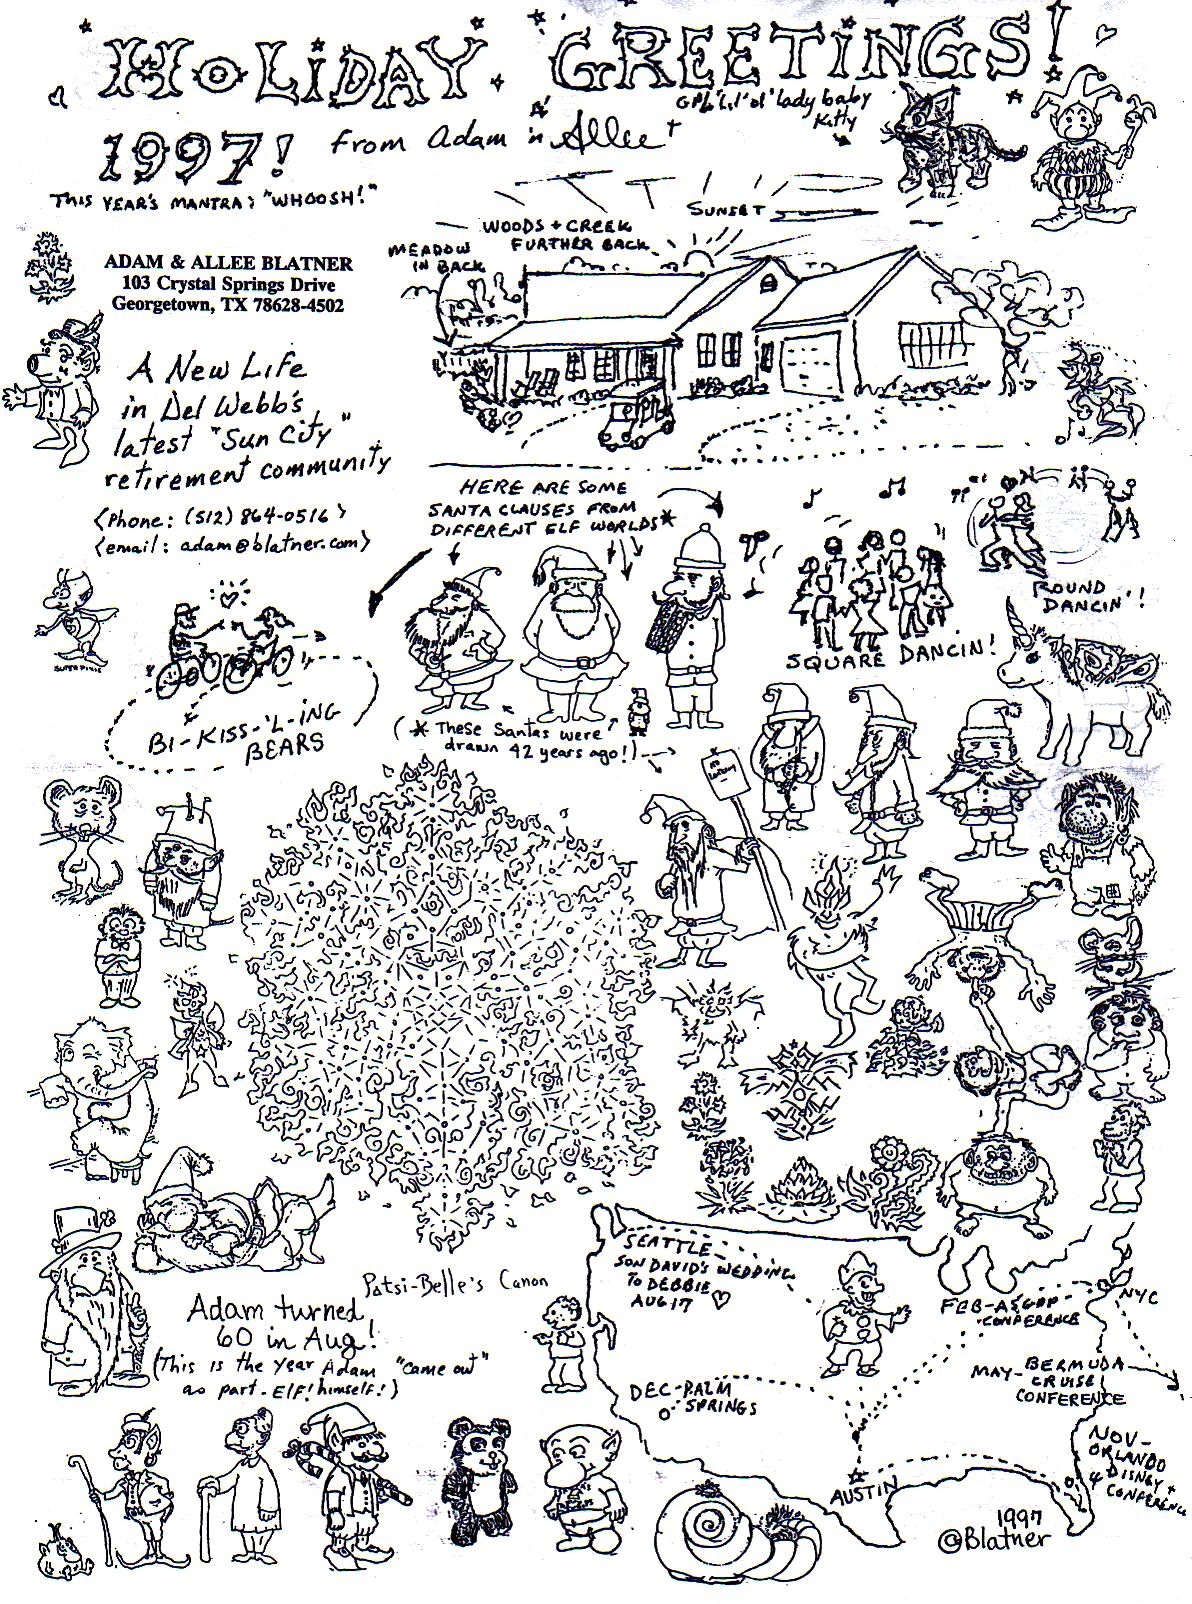 HOLIDAY GREETINGS!
1997! from Adam 'n Allee +
lil' ol' lady baby
Kitty
THIS YEAR'S MANTRA: "WHOOSH!"
SUNSET
WOODS + CREEK
FURTHER BACK
MEADOW
IN BACK
ADAM & ALLEE BLATNER
103 Crystal Springs Drive
Georgetown, TX 78628-4502
A New Life
in Del Webb's
latest "Sun City"
retirement community
<Phone: (512) 864-0516>
<email: adam@blatner.com>
HERE ARE SOME
SANTA CLAUSES FROM
DIFFERENT ELF WORLDS*
ROUND
DANCIN'!
SQUARE DANCIN!
SUPER PIXIE
BI-KISS-'L-ING
BEARS
(* These Santas were
drawn 42 years ago!)
Patsi-Belle's Canon
Adam turned
60 in Aug!
(This is the year Adam "came out"
as part-Elf! himself!)
SEATTLE
SON DAVID'S WEDDING
TO DEBBIE
AUG 17
FEB-ASGPP-
CONFERENCE
NYC
MAY-BERMUDA
CRUISE
CONFERENCE
DEC-PALM
SPRINGS
NOV-
ORLANDO
DISNEY +
CONFERENCE
AUSTIN
1997
©Blatner